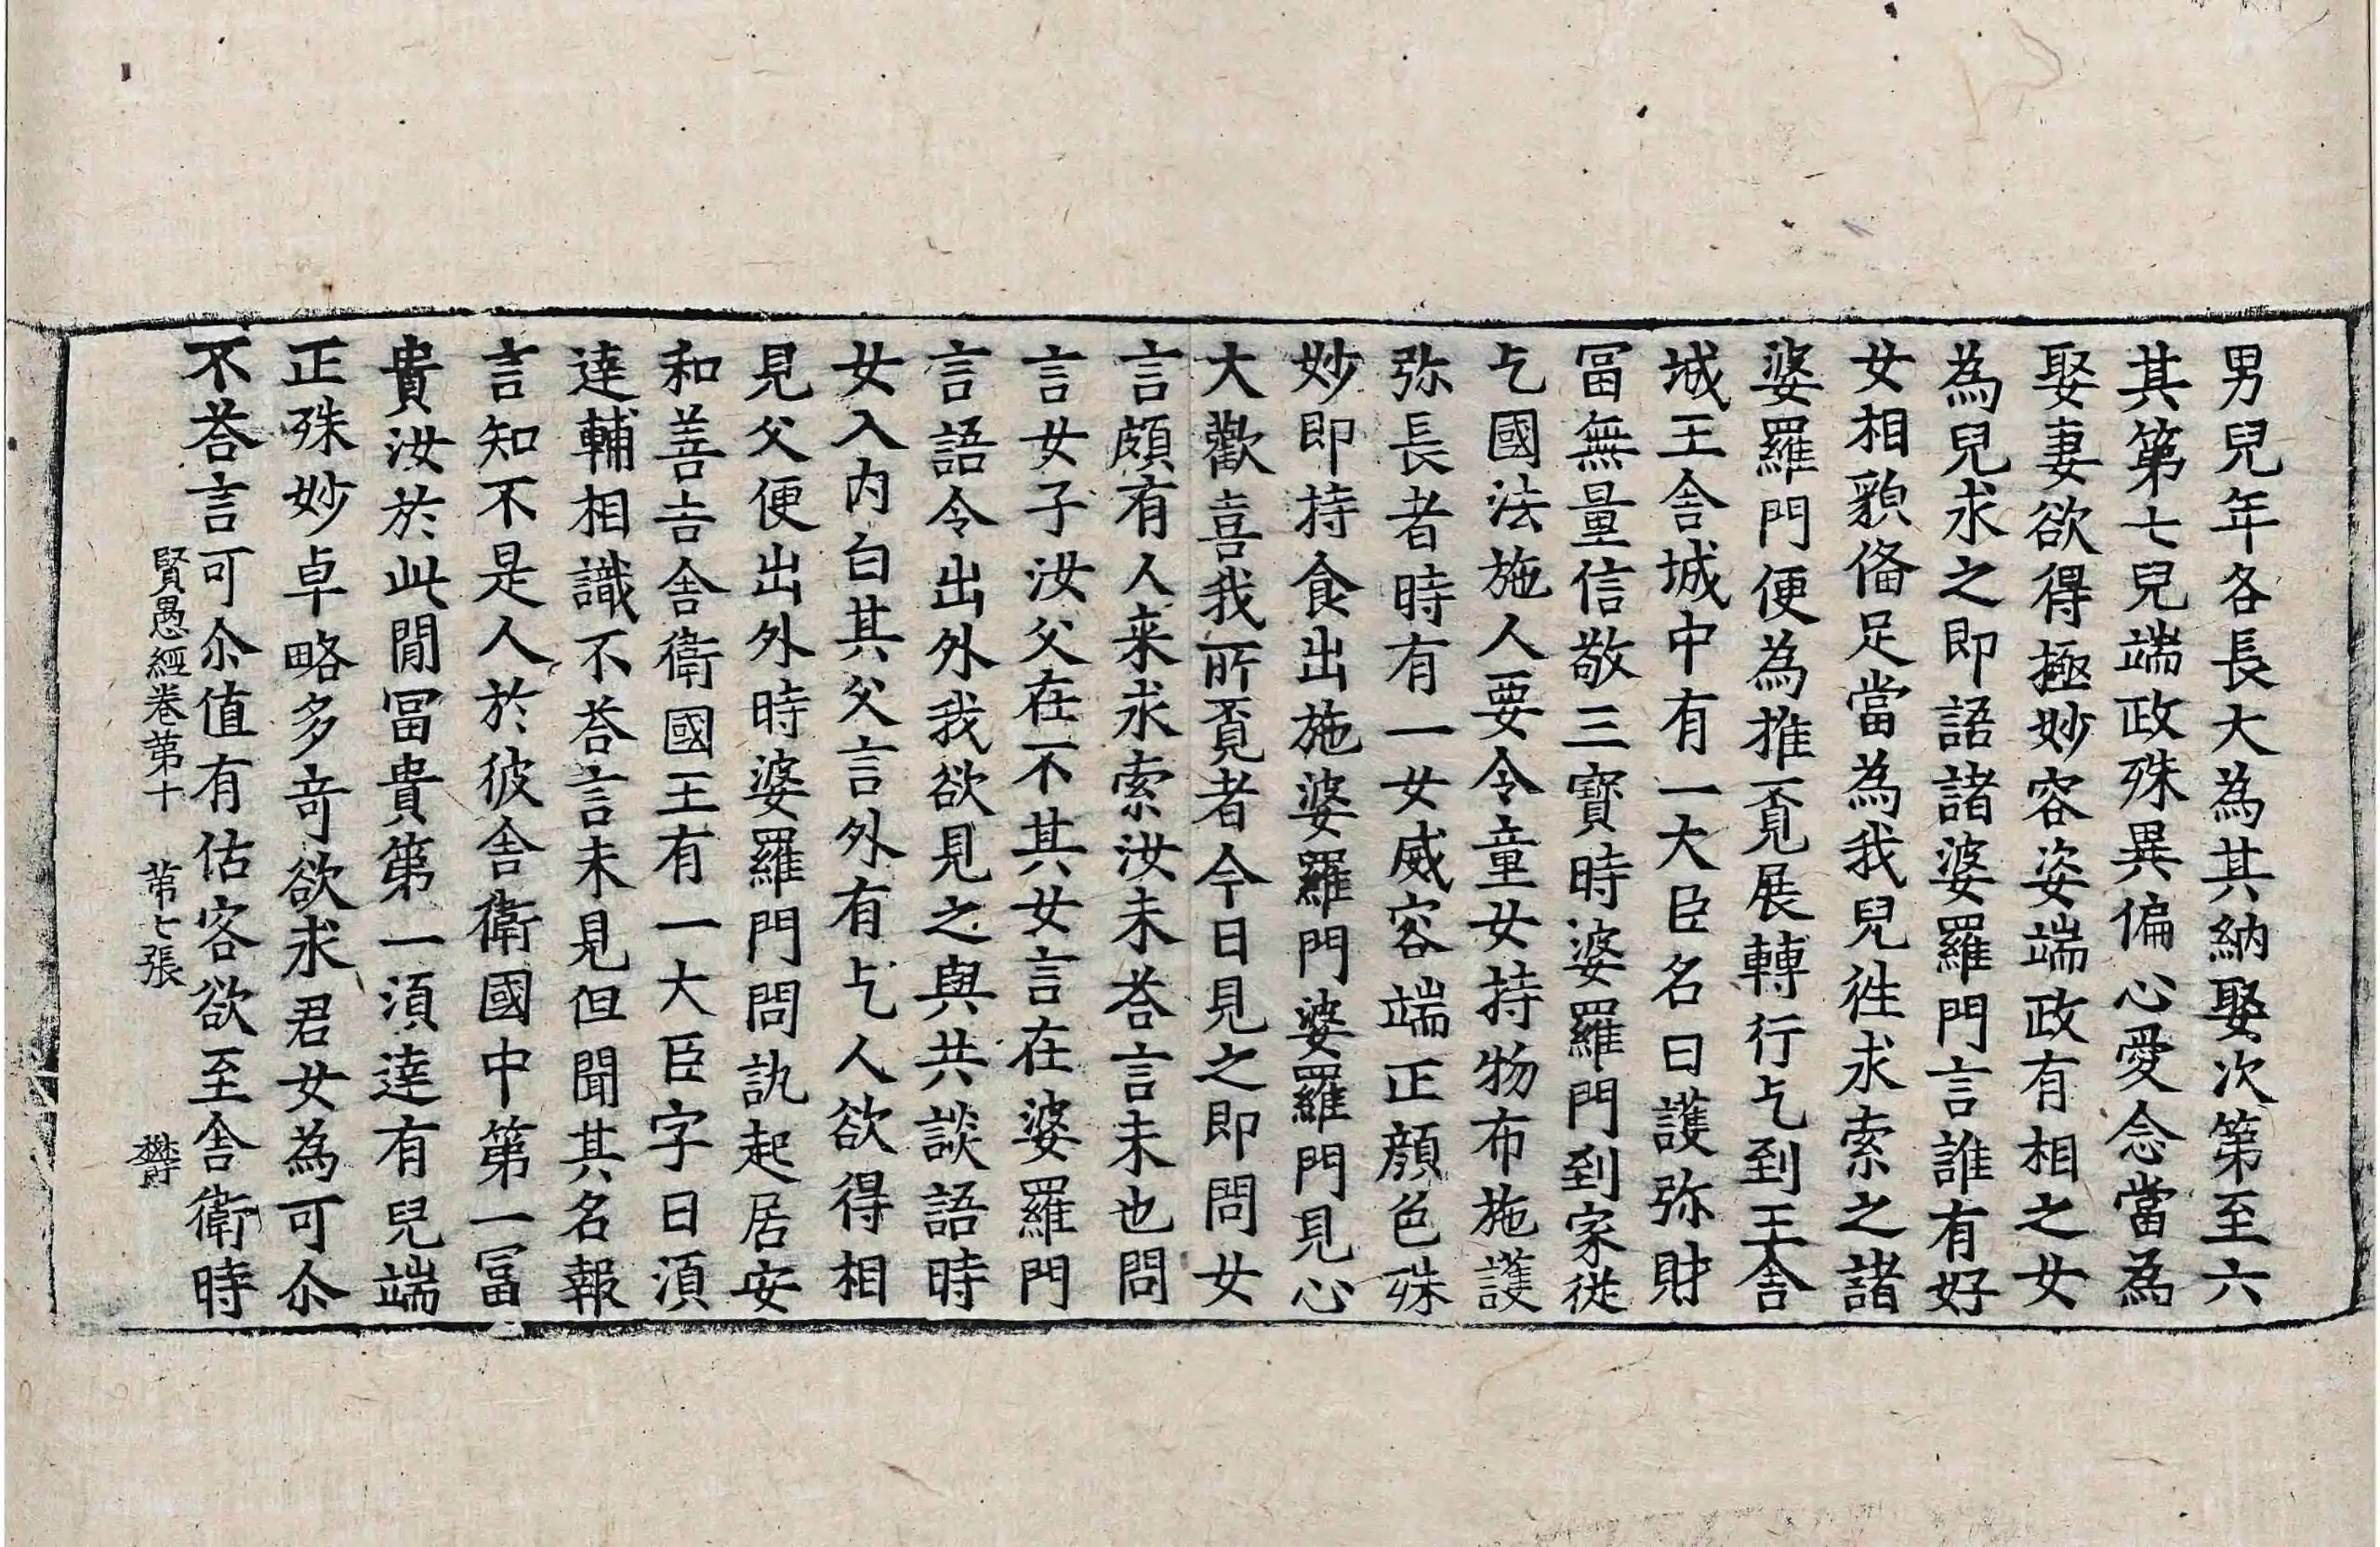 男兒年各長大為其納娶次第至六
其第七兒端政殊異偏心愛念當為
娶妻欲得極妙容姿端政有相之女
為兒求之即語諸婆羅門言誰有好
女相貌俻足當為我兒徃求索之諸
婆羅門便為推覔展轉行乞到王舍
城王舍城中有一大臣名曰護弥財
冨無量信敬三寶時婆羅門到家從
乞國法施人要令童女持物布施護
弥長者時有一女威容端正顏色殊
妙即持食出施婆羅門婆羅門見心
大歡喜我所覔者今日見之即問女
言頗有人来求索汝未荅言未也問
言女子汝父在不其女言在婆羅門
言語令出外我欲見之與共談語時
女入內白其父言外有乞人欲得相
見父便出外時婆羅門問訊起居安
和善吉舍衛國王有一大臣字曰湏
達輔相識不荅言未見但聞其名報
言知不是人於彼舍衛國中第一冨
貴汝於此間冨貴第一湏達有兒端
正殊妙卓略多奇欲求君女為可尒
不荅言可尒值有估客欲至舍衛時
賢愚經卷第十 第七張 欝